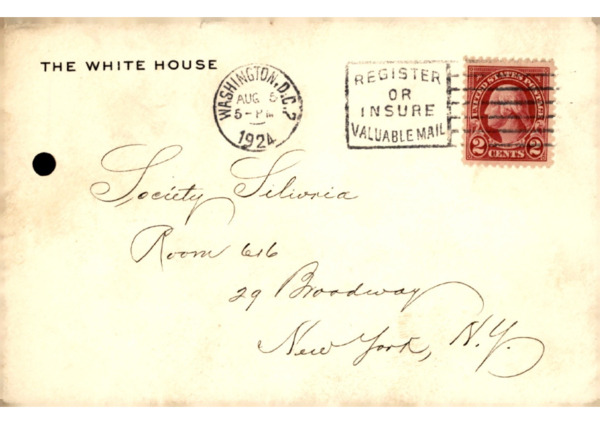 THE WHITE HOUSE
WASHINGTON, D.C. 2
AUG 5
5-PM
1924
REGISTER
OR
INSURE
VALUABLE MAIL
UNITED STATES POSTAGE
2 CENTS 2
Society Silvria
Room 616
29 Broadway
New York, N.Y.